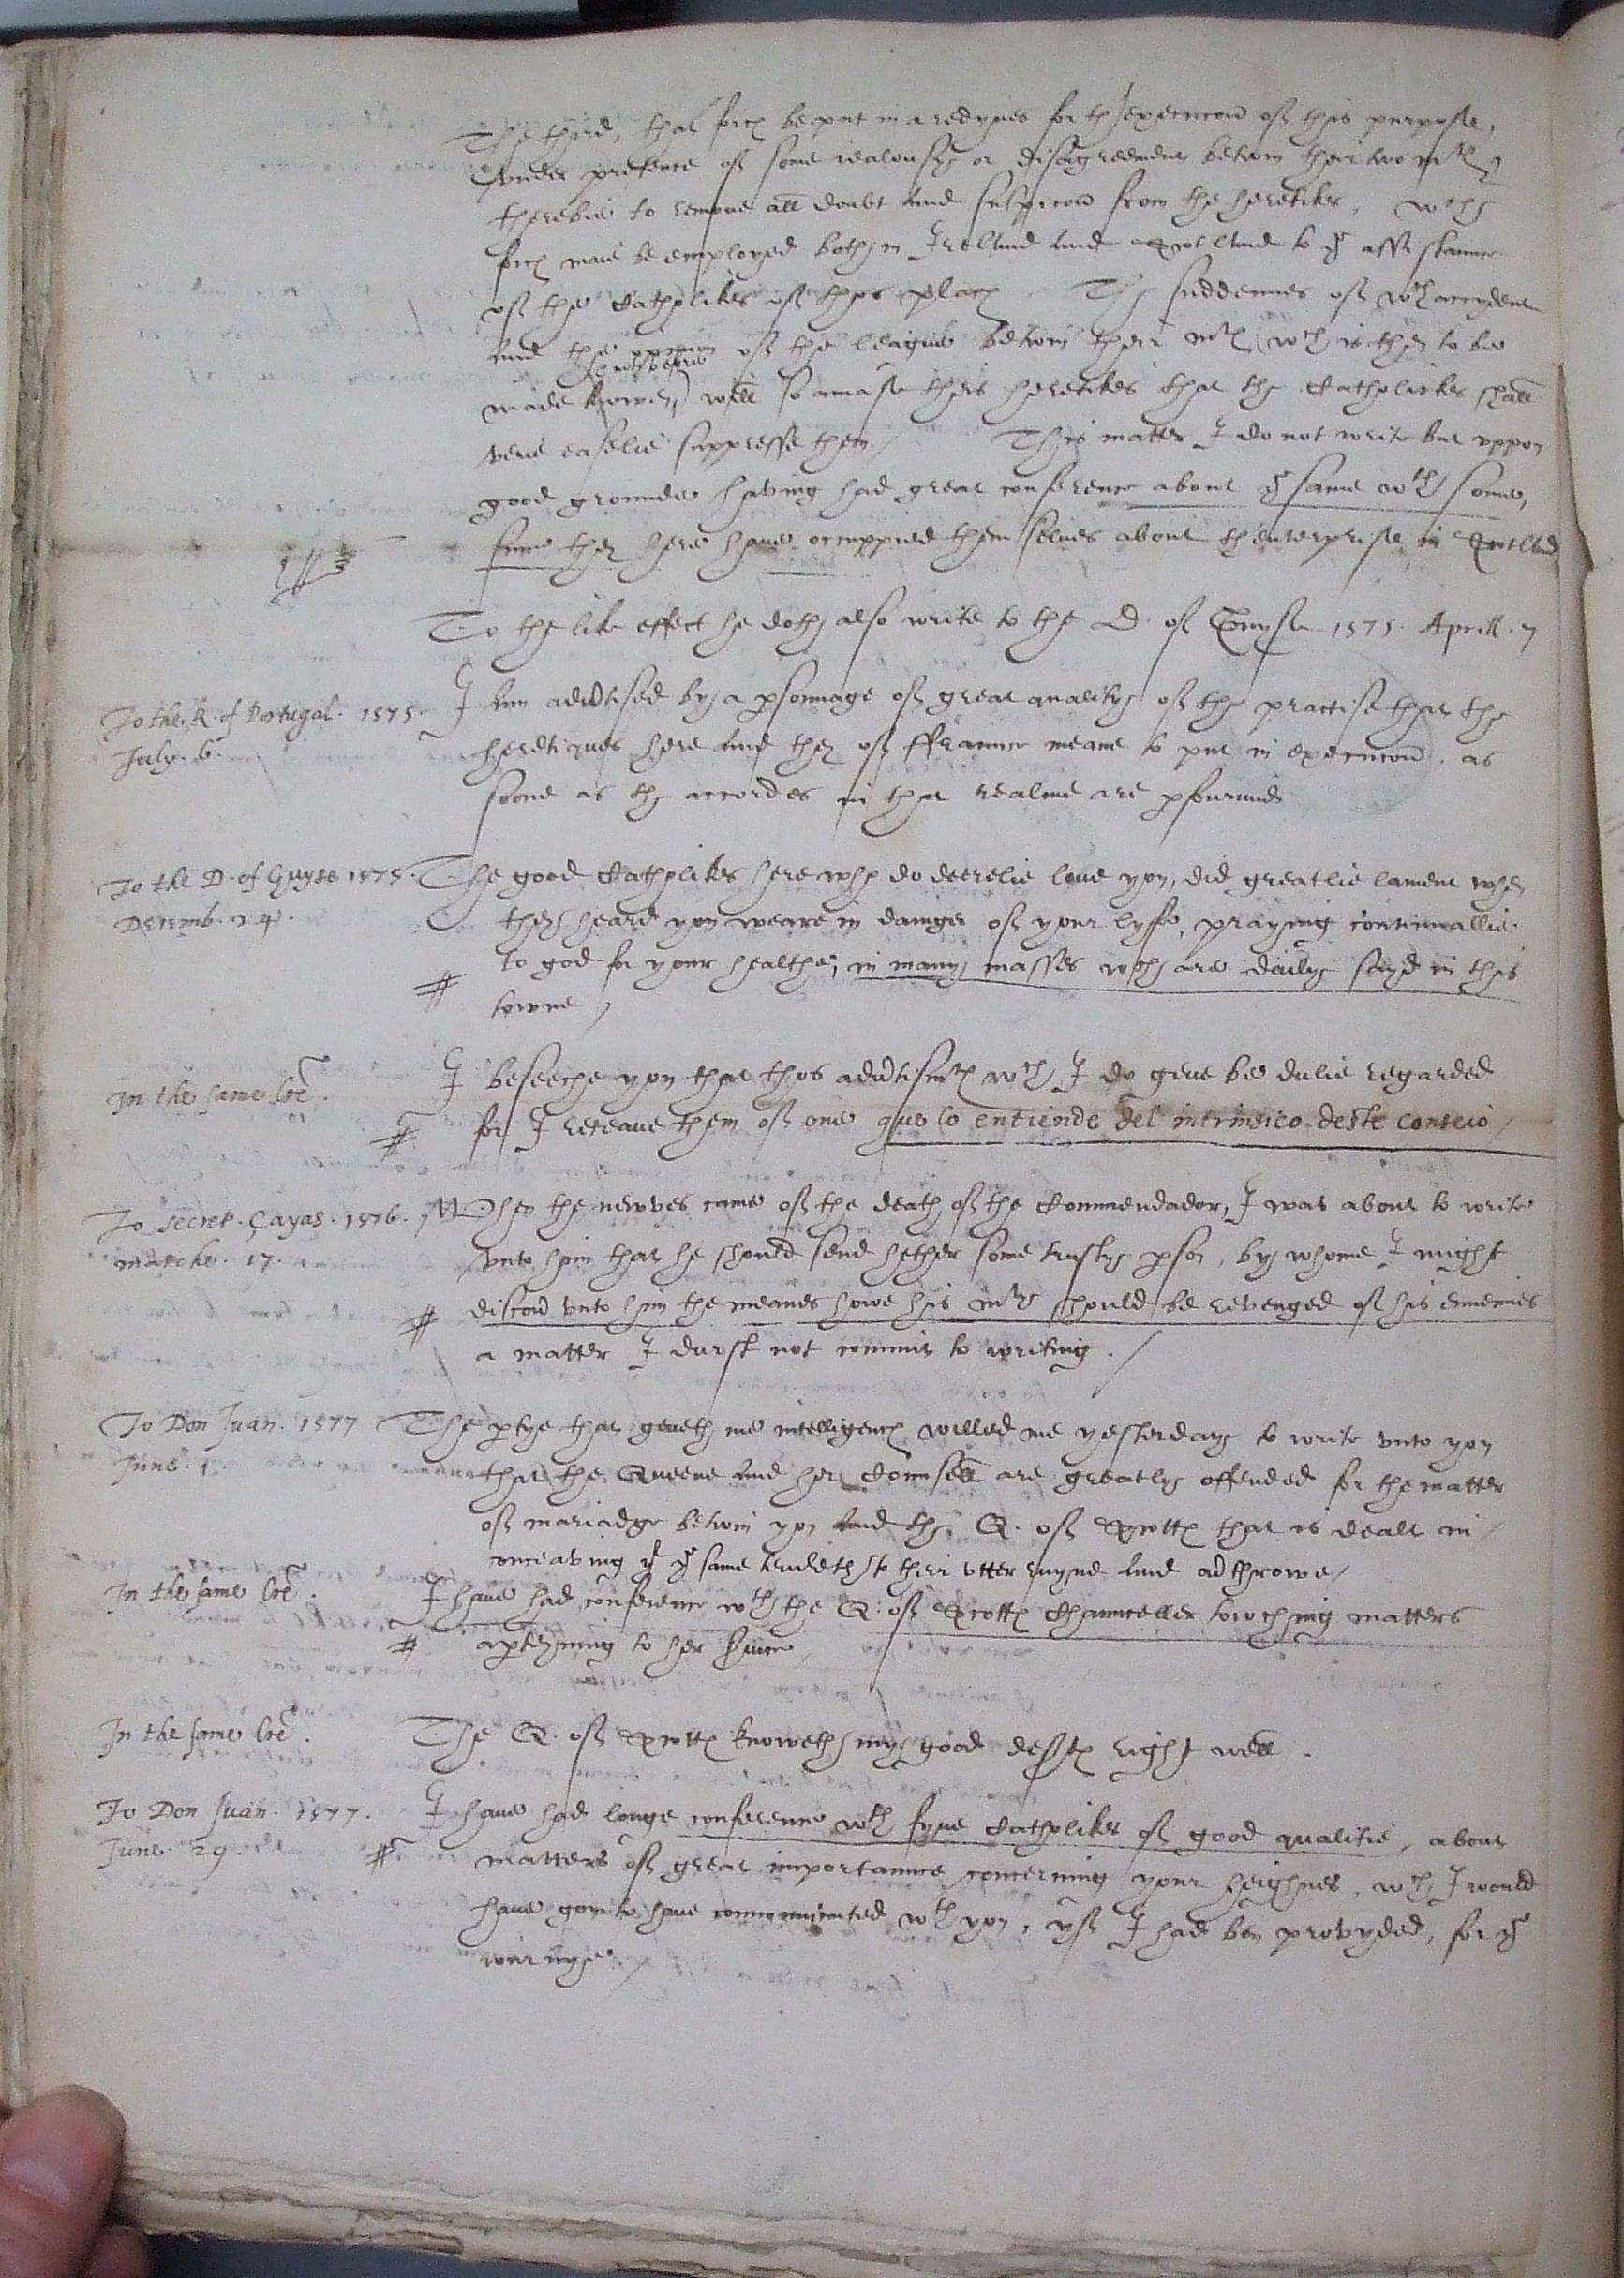 The third, that forces be put in a redynes for thexecucion of this purpose,
vnder pretence of some iealousy or disagreement betwin their two maties
therebie to remoue all doubt and suspicion from the heretikes, wch
forces maie be employed both in Ireland and Scotland to ye assistaunce
of the Catholikes of thos places. The suddennes of wch accydent
and the opinion of the league betwin their maties (wch is then to be
not before
made knowen) will so amase theis heretikes that the Catholickes shall
verie easelie suppresse them / This matter I do not write but vppon
good grounde having had great conference about ye same wth some,
sinse they here haue occuppied them selues about thenterprise in Scotland
To the like effect he doth also write to the D. of Guyse 1575. Aprill. 7
To the K. of Portugal. 1575. I am aduertised by a personnage of great quality of the practise that the
July. 6. heretiques here and they of ffraunce meane to put in execucion, as
soone as the accordes in that realme are perfourmid
To the D. of Guyse 1575. The good Catholikes here who do deerelie loue you, did greatlie lament when
Decemb. 24. they heard you weare in daunger of your lyfe, praying continuallie
to god for your healthe, in many masses wch are daily sayd in this
towne /
In the same lre. I beseeche you that thos aduertismentes wch I do geue be dulie regarded
for I receaue them of one que lo entiende del intrinsico deste conseio /
To Secret. Çayas. 1576. When the newes came of the death of the Commendador, I was about to write
Marche. 17. vnto him that he should send hether some trusty person, by whome I might
discouer vnto him the meanes howe his matie should be revenged of his ennemies
a matter I durst not commit to writing. /
To Don Juan. 1577 The partye that geueth me intelligences willed me yesterday to write vnto you
June. 1. that the Queene and her Counsell are greatly offended for the matter
of mariadge betwin you and the Q. of Scottes that is dealt in /
conceaving yt ye same tendeth to their vtter ruyne and overthrowe /
In the same lre. I haue had conference wth the Q. of Scottes Chaunceller towching matters
apertayning to her seruice /
In the same lre. The Q. of Scottes knoweth my good desires right well.
To Don Juan. 1577. I haue had longe conference wth fyue Catholikes of good qualitie, about
June. 29. matters of great importaunce concerning your heighnes, wch I would
haue gon to haue communicated wth you, yf I had ben provyded, for ye
viaje /